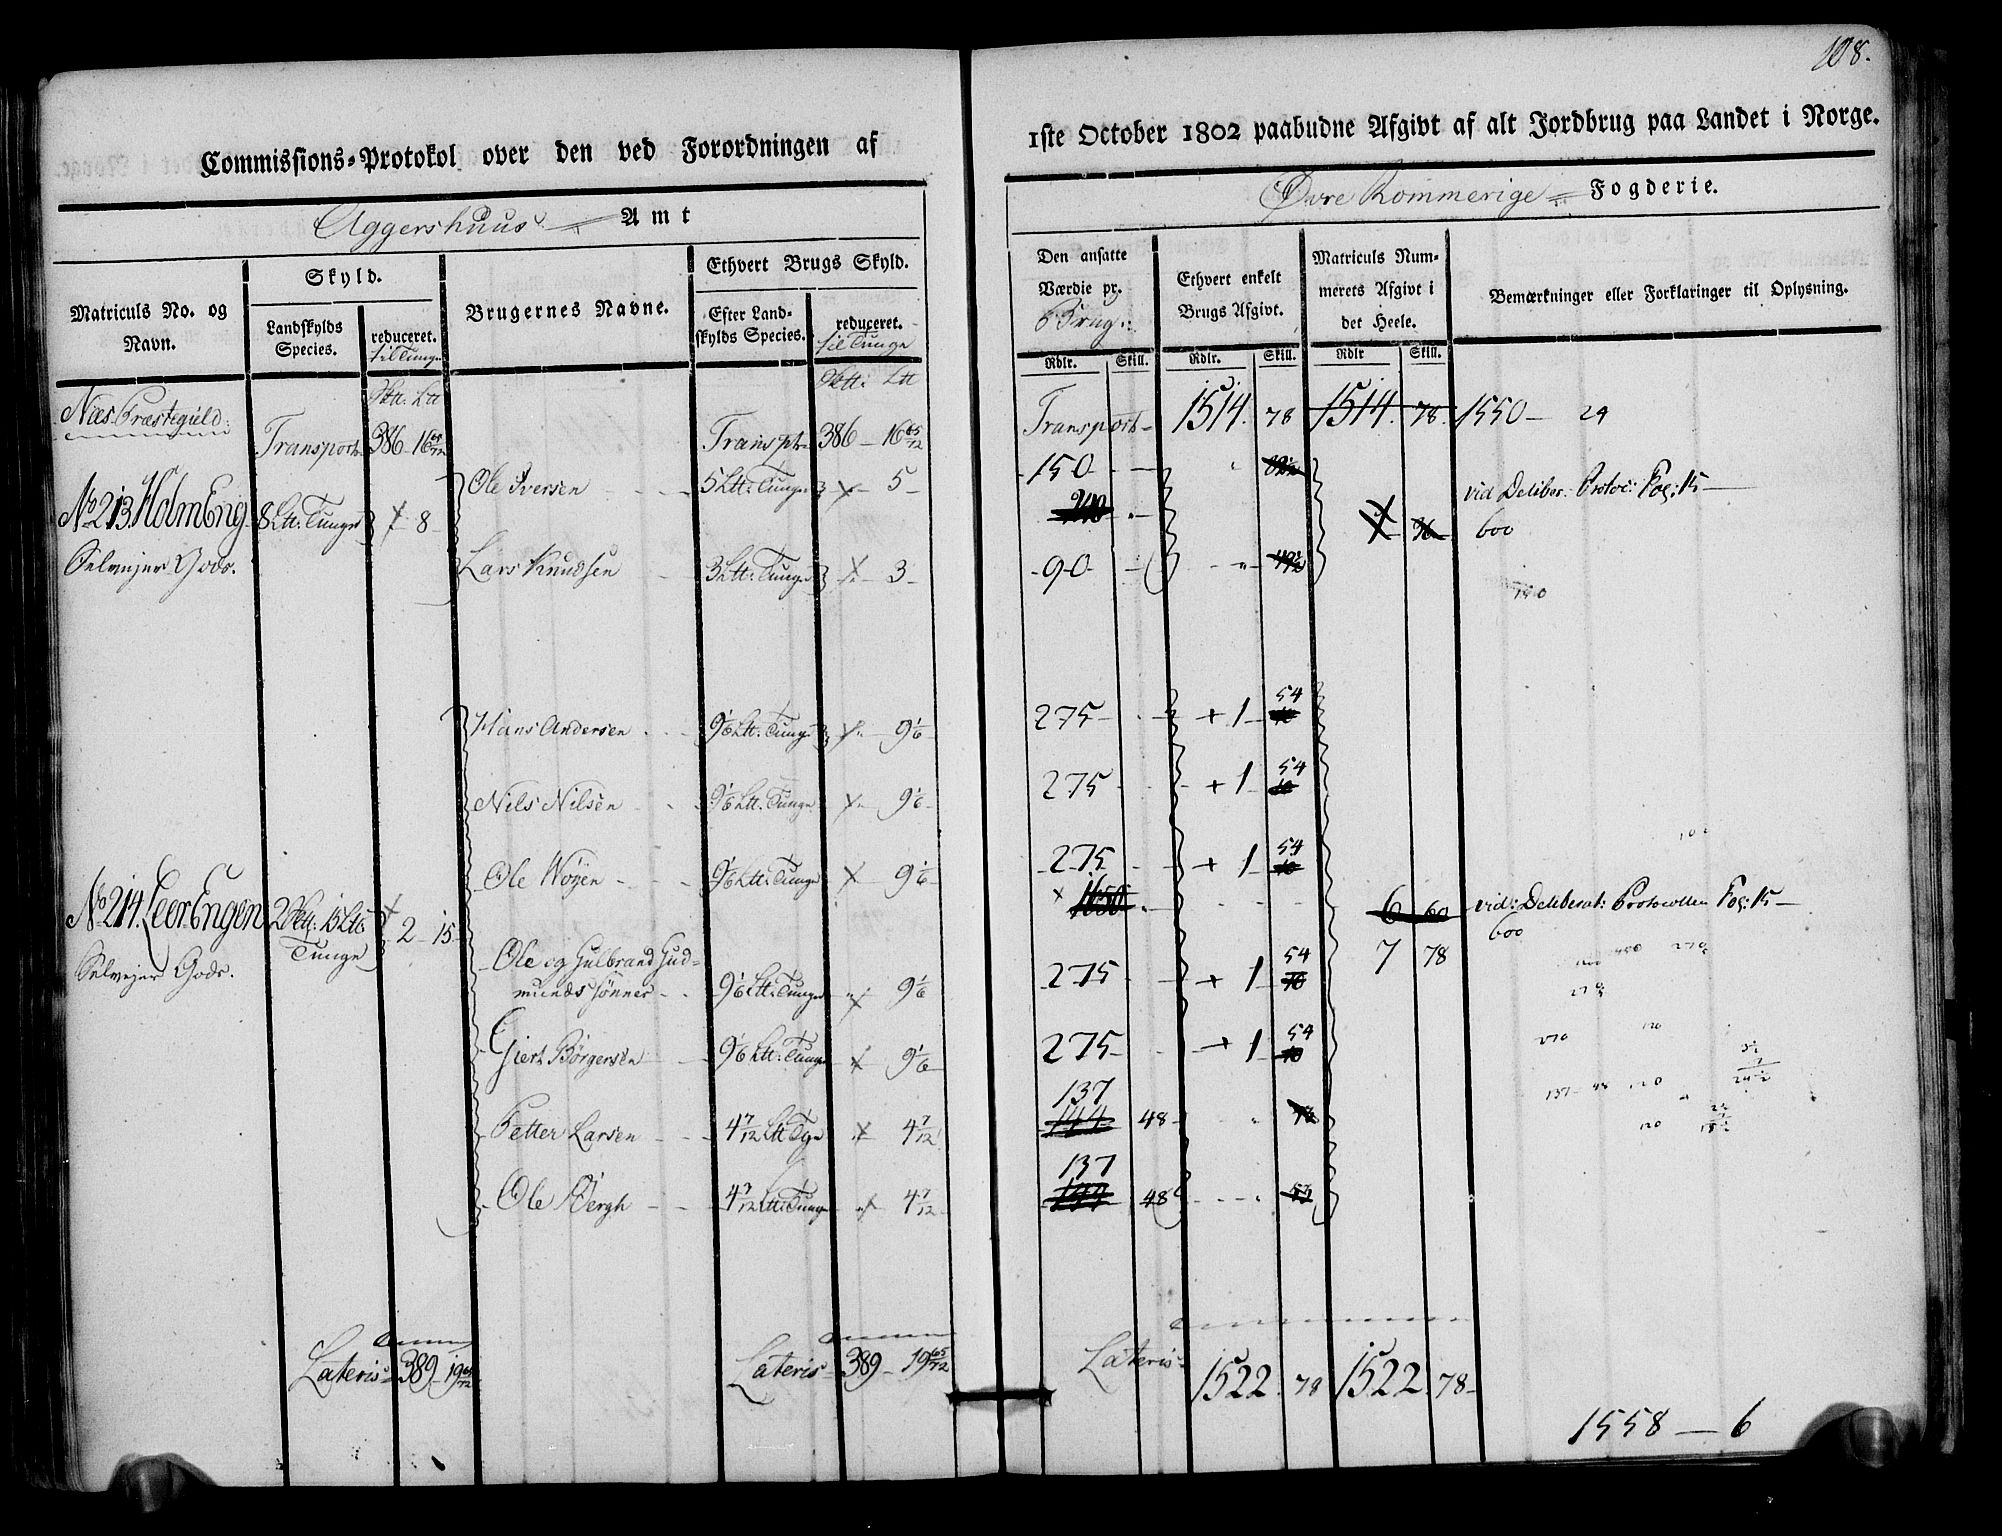 108.
Commissions-Protokol over den ved Forordningen af
1ste October 1802 paabudne Afgivt af alt Jordbrug paa Landet i Norge.
Aggershuus Amt
Øvre Rommerige Fogderie.
Matriculs No. og Navn.
Skyld.
Landskylds Species.
reduceret. til Tunge
Brugernes Navne.
Ethvert Brugs Skyld.
Efter Landskylds Species.
reduceret. til Tunge
Den ansatte Værdie pr. Brug.
Ethvert enkelt Brugs Afgivt.
Matriculs Nummerets Afgivt i det Heele.
Bemærkninger eller Forklaringer til Oplysning.
Rdlr. Skill. Rdlr. Skill. Rdlr Skill.
Næs Præstegield: Transport 386 - 16 65/72 Transpt 386 - 16 65/72 Transport 1514. 78 1514. 78. 1550 - 24
No 213. HolmEng 8 Ltt: Tunge 8 -
Selvejer Gods.
Ole Iversen 5 Ltt: Tunge 5 - 150
240
Lars Knudsen 3 Ltt: Tunge 3 - 90
vid Deliber. Protoc: Fog: 15
600
Hans Andersen 9 1/6 Ltt: Tunge 9 1/6 275 + 1 54
Nils Nilsen 9 1/6 Ltt: Tunge 9 1/6 275 + 1 54
Ole Nøyen 9 1/6 Ltt: Tunge 9 1/6 275 + 1 54
1650
No 214. LeerEngen 2 15 Ltt: Tunge 2 - 15
Selvejer Gods.
6 60 vid: Deliberat: Protocollen Fog: 15
600
7 78
Ole og Gulbrand Gudmunds sønner 9 1/6 Ltt: Tunge 9 1/6 275 + 1 54
Giert Børgersen 9 1/6 Ltt: Tunge 9 1/6 275 + 1 54
137
Petter Larsen 4 7/12 Ltt Tge 4 7/12 144 48
137
Ole Bergh 4 7/12 Ltt: Tunge 4 7/12 144 48
Lateris 389 - 19 65/72 Lateris 389 - 19 65/72 Lateris 1522. 78 1522. 78
1558 - 6